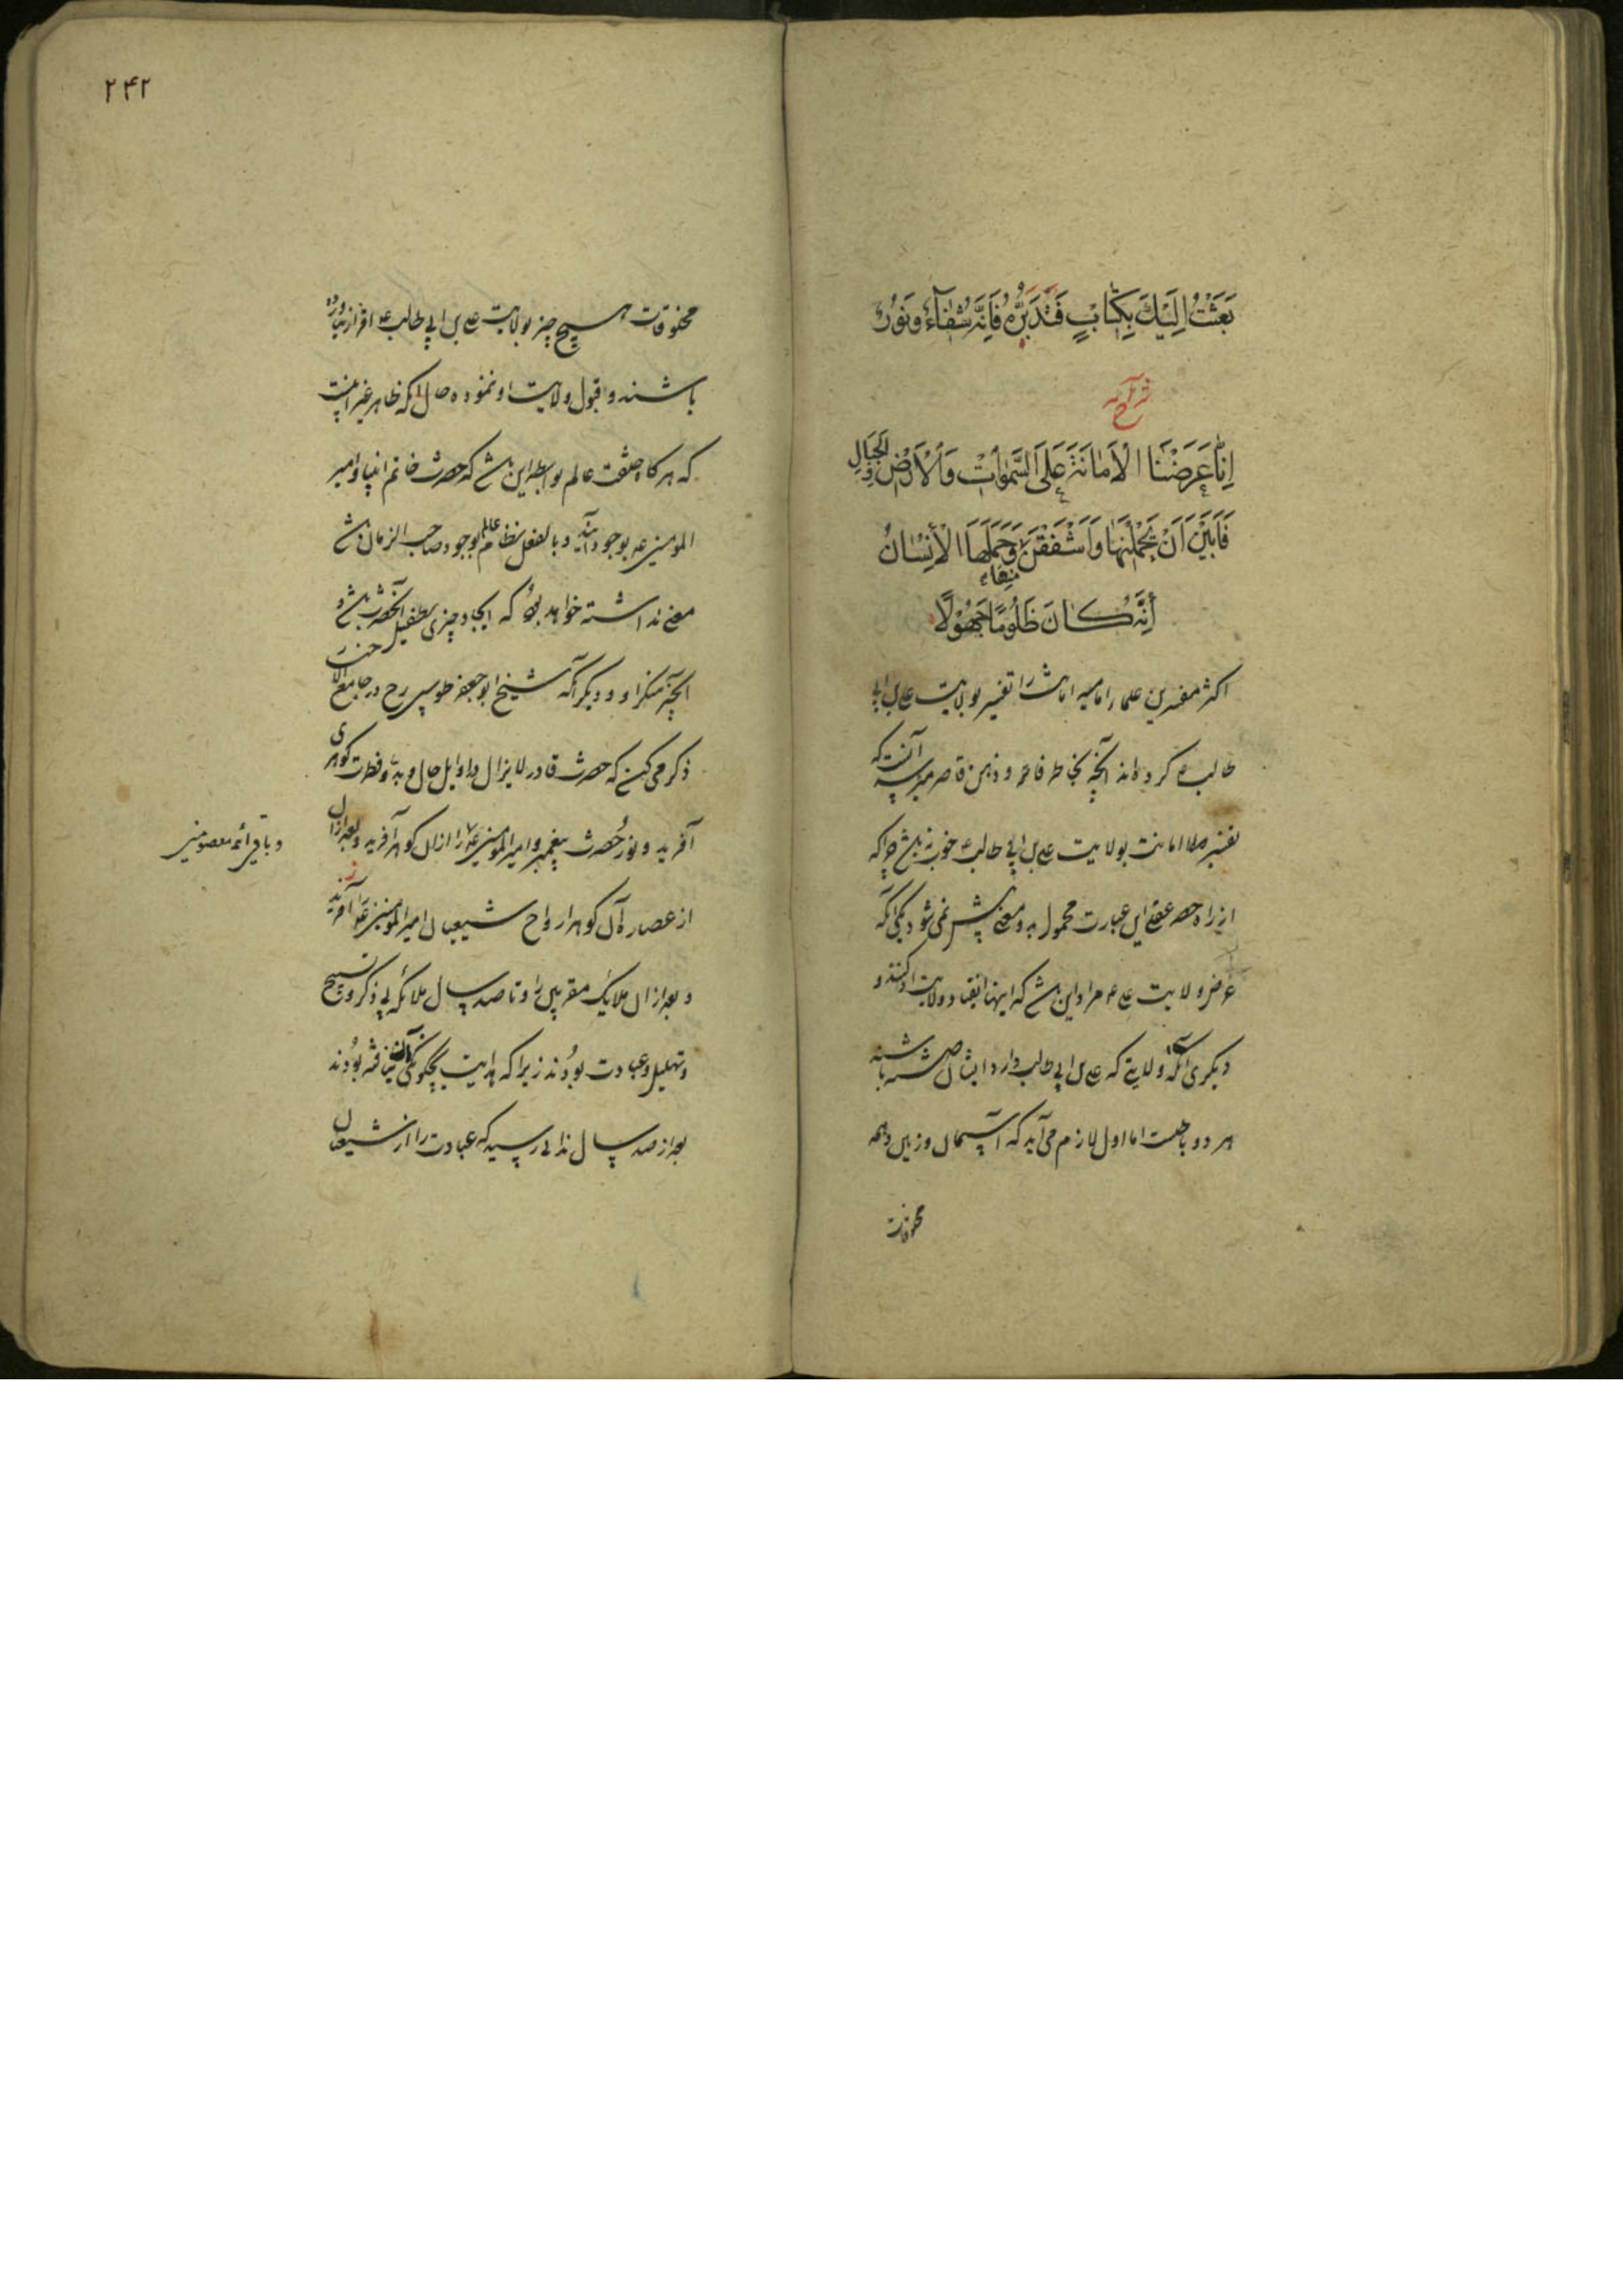 بَعَثْتُ اِلَيْكَ بِكِتَابٍ فَتَدَبَّرْهُ فَاِنَّهُ شِفَآءٌ وَنُورٌ
شرح آیه
اِنَّا عَرَضْنَا الْاَمَانَةَ عَلَى السَّمٰوَاتِ وَالْاَرْضِ وَالْجِبَالِ
فَاَبَيْنَ اَنْ يَحْمِلْنَهَا وَاَشْفَقْنَ مِنْهَا وَحَمَلَهَا الْاِنْسَانُ
اِنَّهُ كَانَ ظَلُومًا جَهُولًا
اکثر مفسرین علماء امامیه امانت را تفسیر بولایت علی بن ابی
طالب ع کرده‌اند آنچه بخاطر فاتر و ذهن قاصر میرسد آنست که
تفسیر امانت بولایت علی بن ابی طالب ع خوب نباشد چرا که
از راه حصر عقلی این عبارت محمول بدو معنی بیش نمی‌شود یکی آنکه
عرض ولایت علی ع مراد این باشد که اینها انقیاد ولایت او کنند و
دیگری آنکه ولایتی که علی بن ابی طالب دارد ایشان داشته باشند
هر دو باطلست اما اول لازم می‌آید که آسمان و زمین و همه
مخلوقات
۲۴۲
مخلوقات هیچ چیز بولایت علی بن ابی طالب ع اقرار نیاورده
باشند و قبول ولایت او ننموده حال آنکه ظاهر غیر اینست
که هرگاه خلقت عالم بواسطه این باشد که حضرت خاتم انبیا و امیر
المومنین ع بوجود آیند و بالفعل نظام عالم بوجود صاحب الزمان باشد
معنی نداشته خواهد بود که ایجاد چیزی بطفیل آنحضرت باشد و
آنچیز منکر او و دیگر آنکه شیخ ابو جعفر طوسی رح در جامع الاخبار
ذکر می‌کند که حضرت قادر لایزال در اوایل حال و بدو فطرت گوهری
آفرید و نور حضرت پیغمبر و امیر المومنین ع را از آن گوهر آفرید و بعد از آن
و باقی ائمه معصومین
از عصاره آن گوهر ارواح شیعیان امیر المومنین ع را آفرید
و بعد از آن ملائک مقربین را و تا صد سال ملائکه بی ذکر و تسبیح
و تهلیل و عبادت بودند زیرا که هدایت بچگونگی آن نیافته بودند
بعد از صد سال ندائی رسید که عبادت را از شیعیان